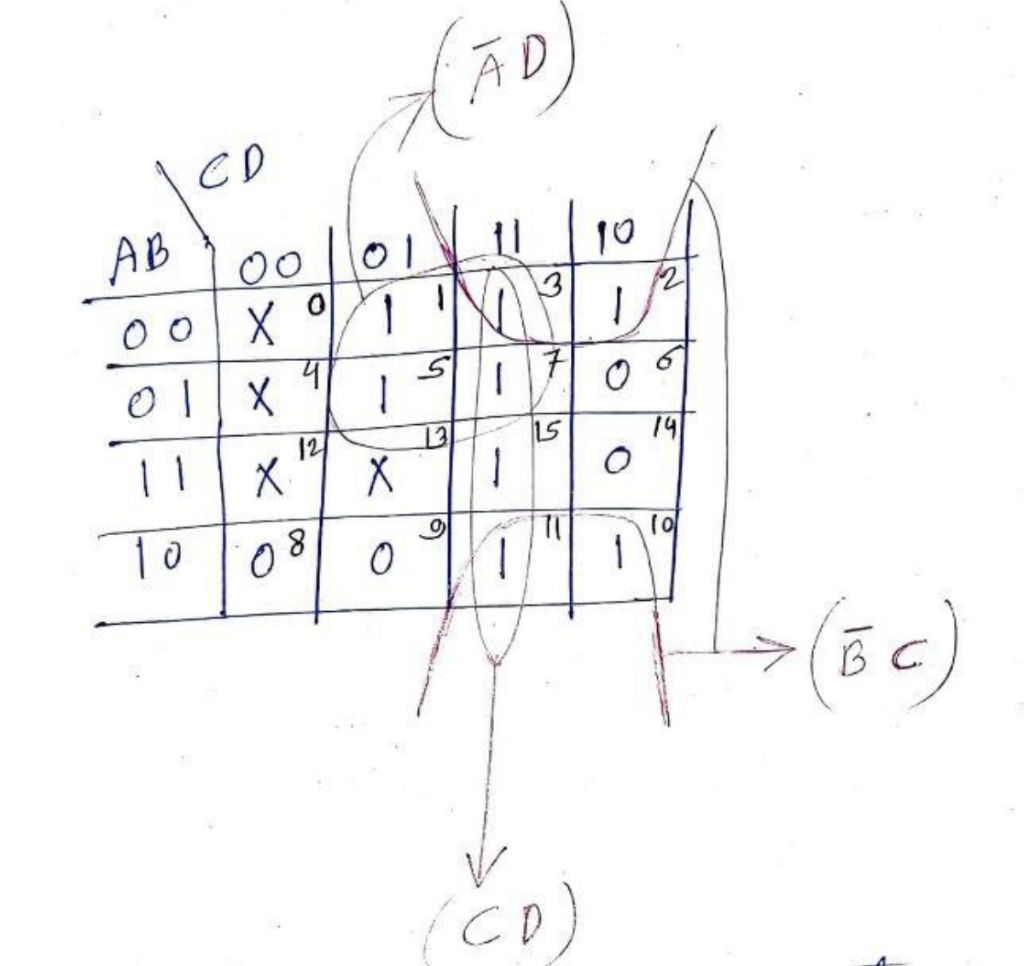 (A̅ D)
CD
AB 00 01 11 10
00 X 0 1 1 1 3 1 2
01 X 4 1 5 1 7 0 6
11 X 12 X 13 1 15 0 14
10 0 8 0 9 1 11 1 10
(B̅ C)
(CD)